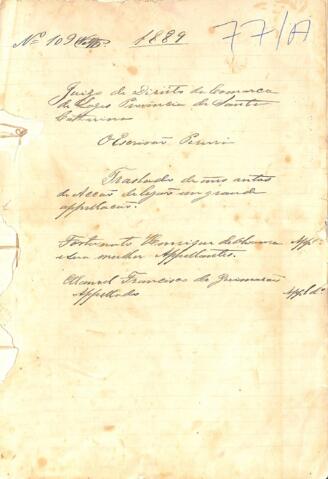 Nº 109 1889 77/A
Juizo de Direito da Comarca
de Lages Provincia de Santa
Catharina
O Escrivão
Traslado de uns autos
de Acção de em grande
appellacão.
Fortunato Henrique de App.
e sua mulher Appellantes.
Manoel Francisco de Guimarães
Appellado App.do